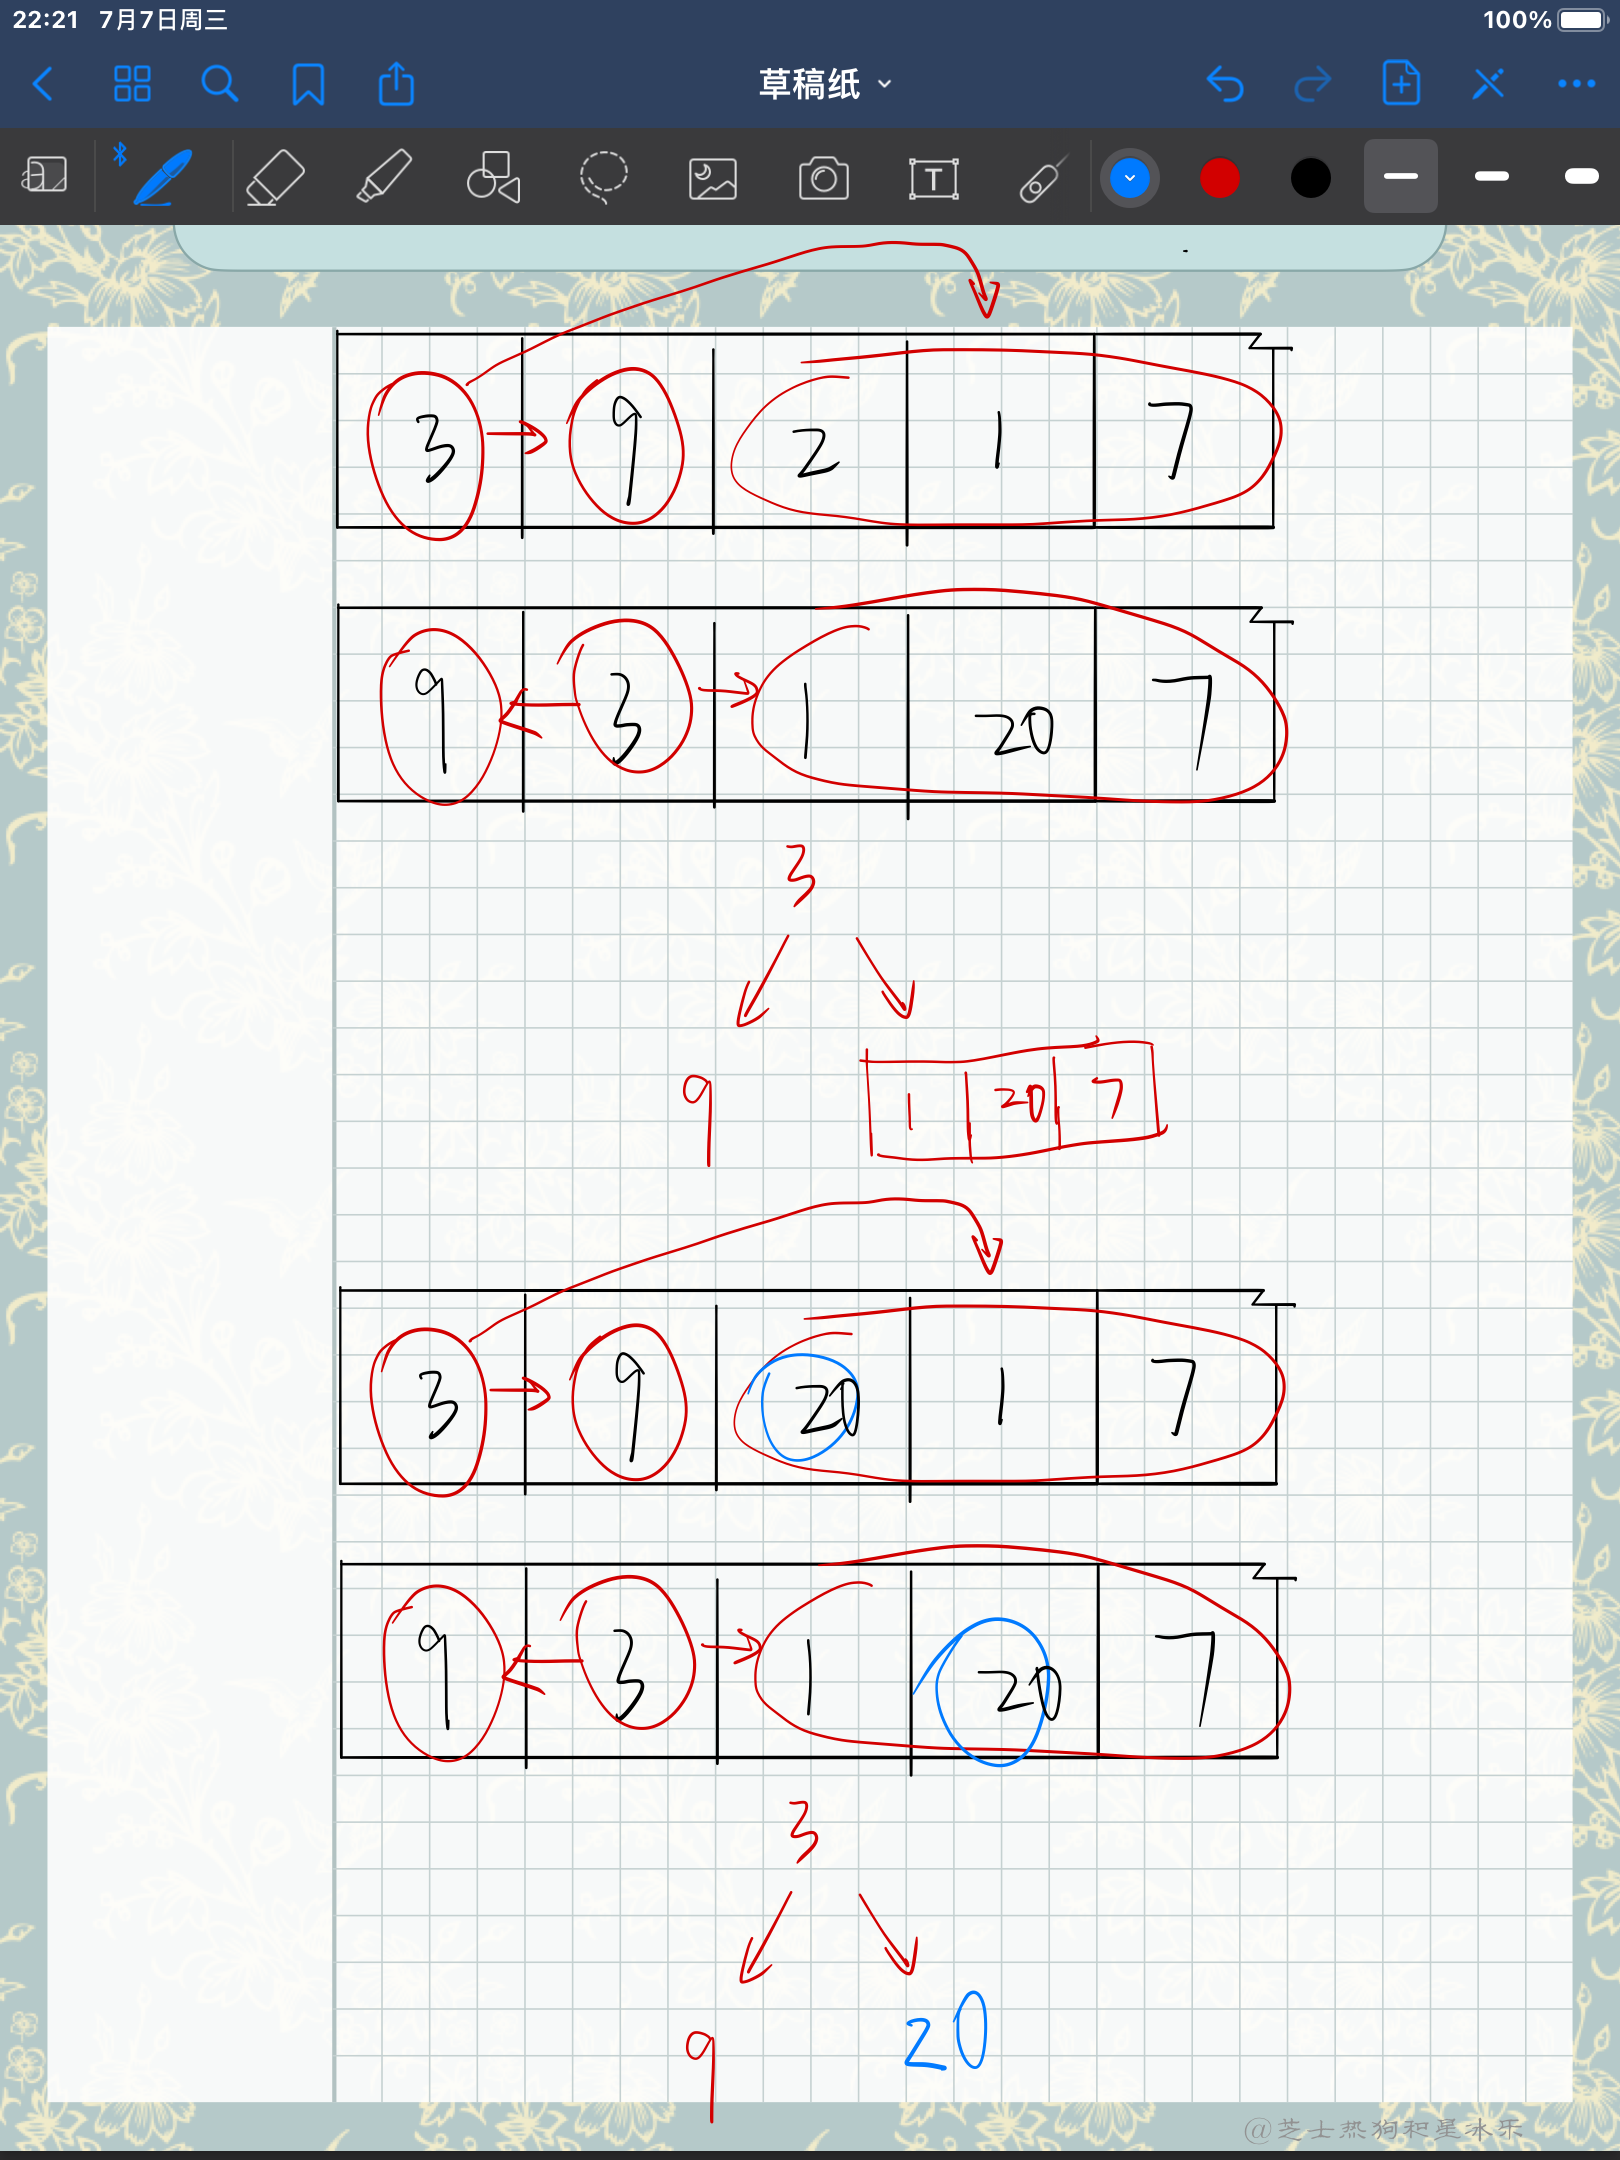 22:21 7月7日周三 100%
草稿纸
T
3 9 2 1 7
9 3 1 20 7
3
9 1 20 7
3 9 20 1 7
9 3 1 20 7
3
9 20
@芝士热狗和星冰乐